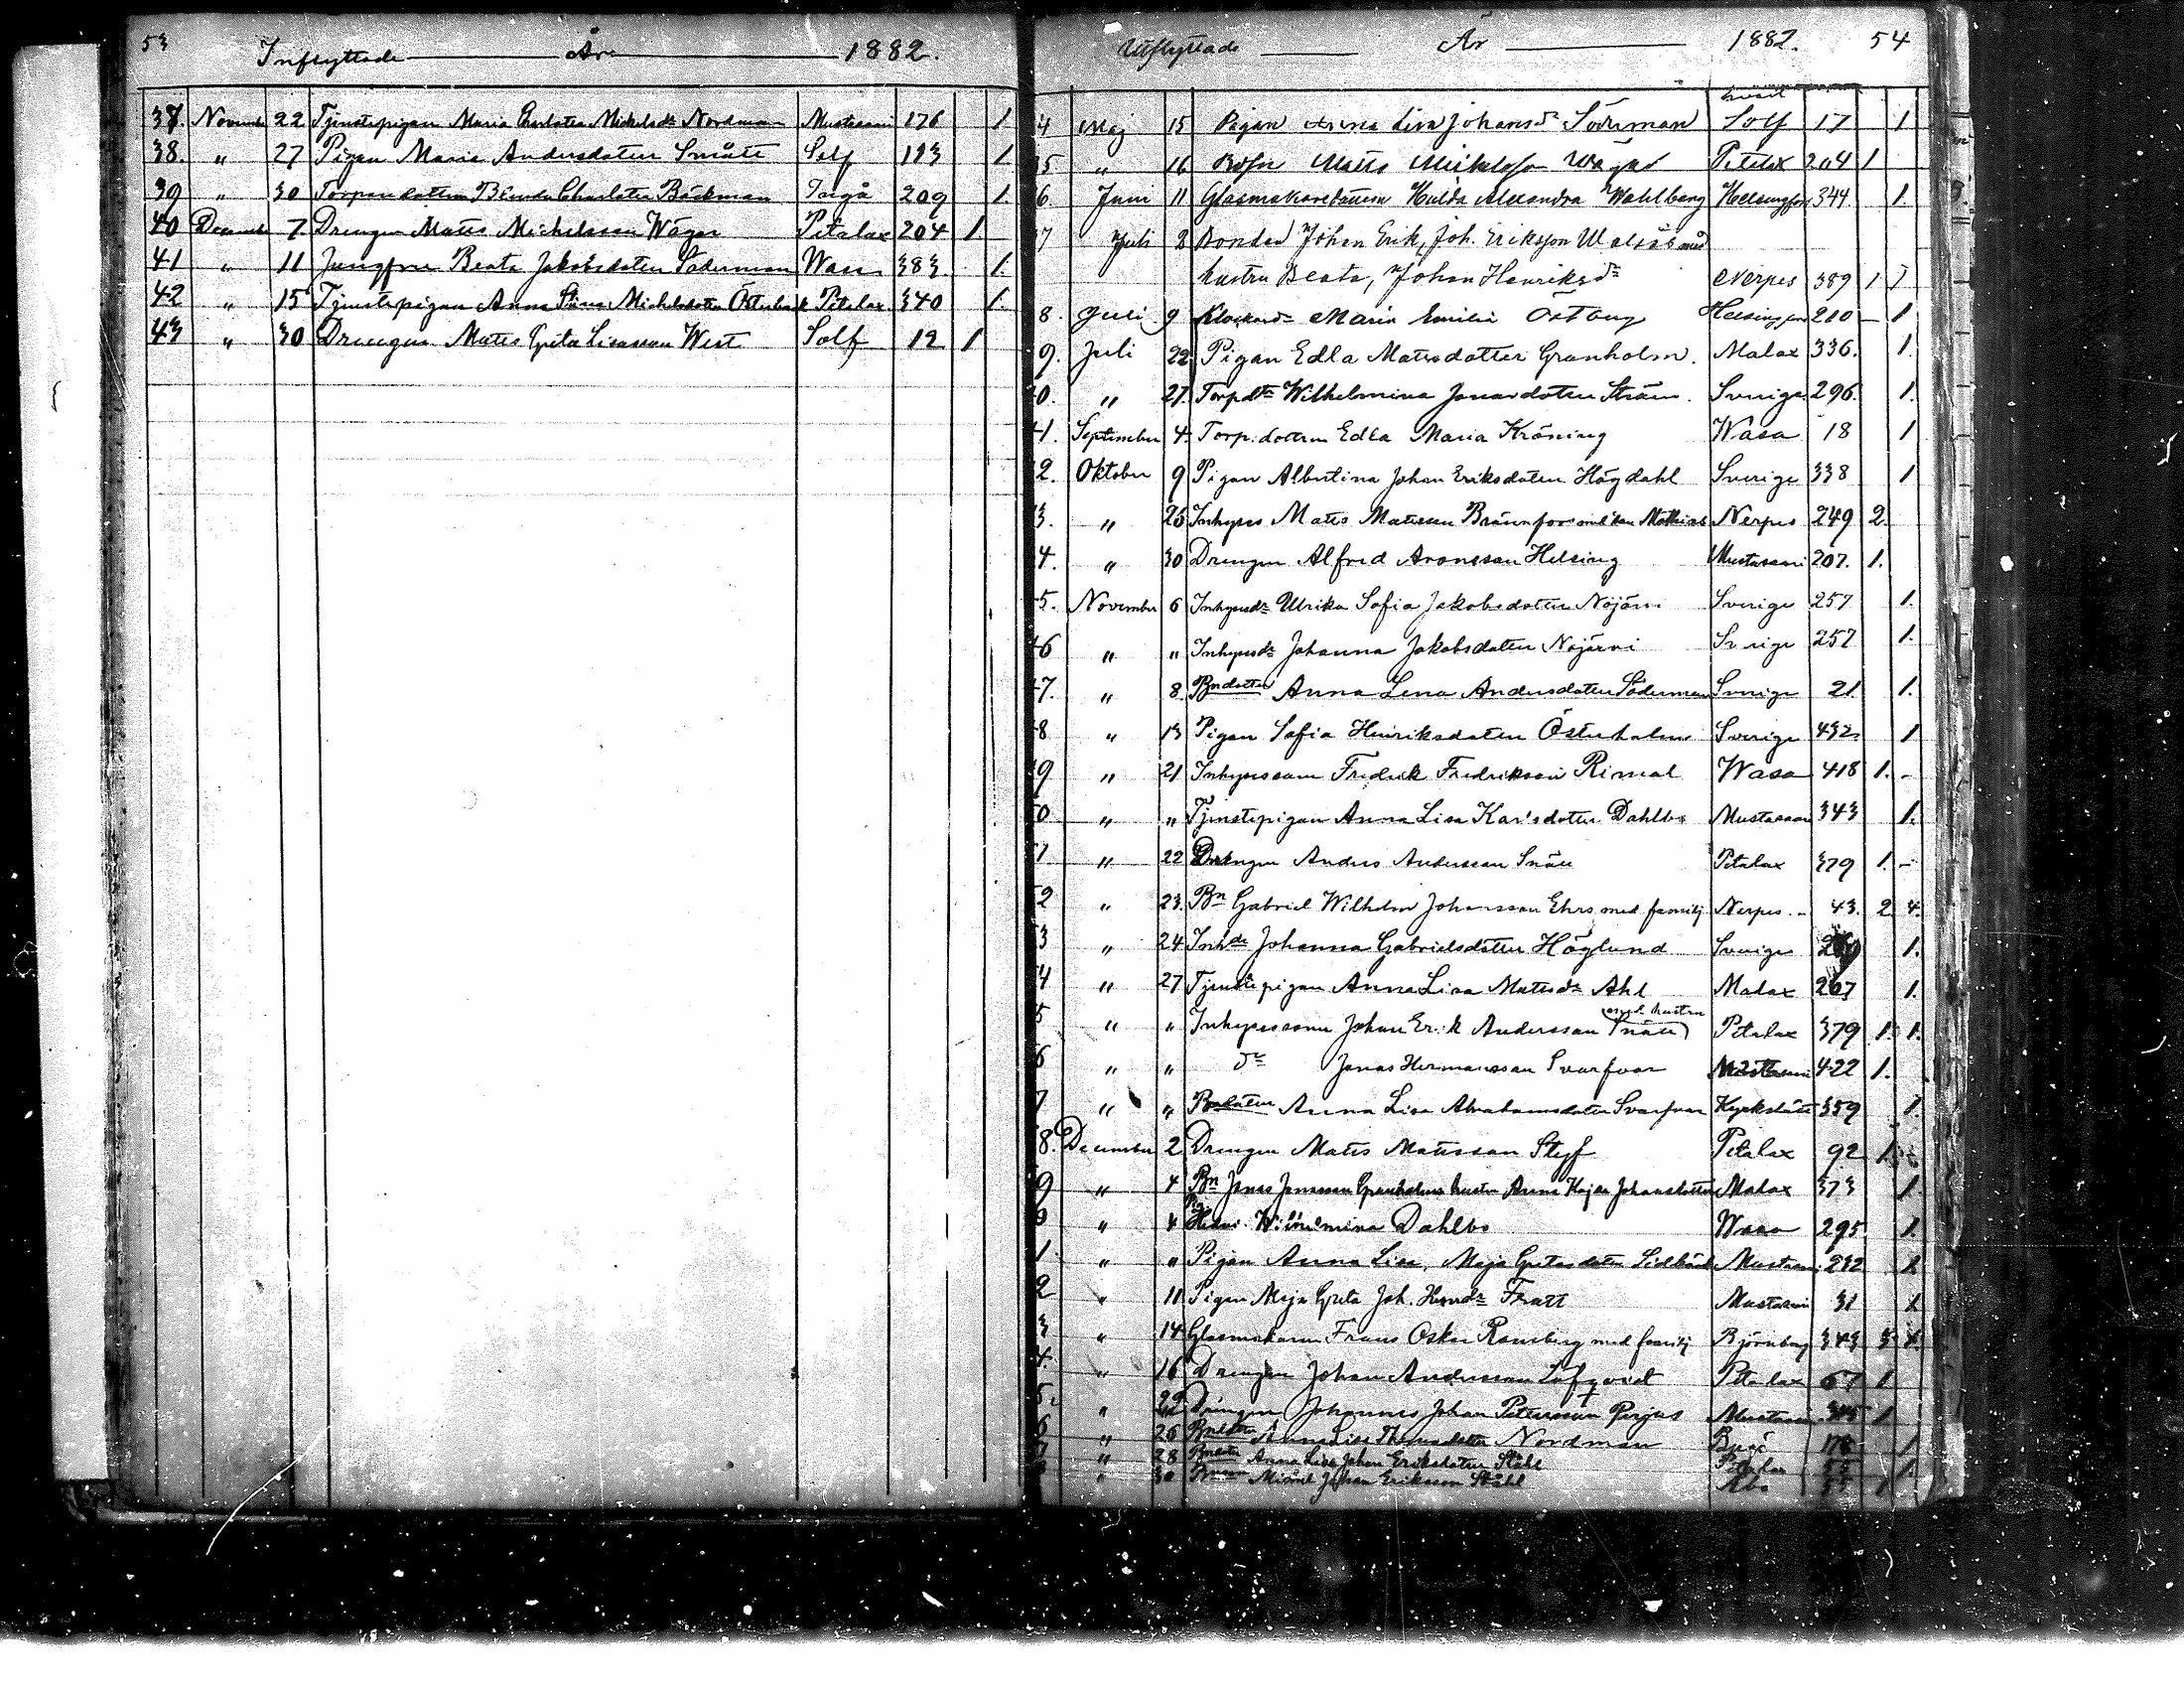 53
Inflyttade År 1882.
37. Novemb 22 Tjenstepigan Maria Charlotta Mickelsdr Nordman Mustasari 176 1
38. " 27 Pigan Maria Andersdotter Snåtti Solf 193 1
39 " 30 Torparedottern Blenda Charlotta Bäckman Ingå 209 1.
40 Decemb 7. Drengen Matts Michelsson Wäger Petalax 204 1
41 " 11 Jungfru Beata Jakobsdotter Söderman Wasa 383. 1.
42 " 15 Tjenstepigan Anna Stina Michelsdotter Österback Petalax 340 1.
43 " 30 Drengen Matts Greta Lisasson West Solf 12 1
Utflyttade År 1882. 54
4 Maj 15 Pigan Anna Lisa Johansdr Söderman Solf 17 1
5 " 16 Matts Mickelsson Wäger Petalax 204 1
6. Juni 11 Glasmakaredottern Hulda Alexandra Wahlberg Helsingfors 344. 1.
7 Juli 2 Bonden Johan Erik, Joh. Eriksson med
hustru Beata, Johan Henriksdr Nerpes 389 1 1
8. Juli 9 Maria Emilia Östberg Helsingfors 210 1
9. Juli 22 Pigan Edla Matsdotter Granholm. Malax 336. 1.
0. " 27. Torpdtr Wilhelmina Jonasdotter Ström. Sverige 296. 1.
41. September 4. Torp.dottern Edla Maria Kröning Wasa 18 1
2. Oktober 9 Pigan Albertina Johan Eriksdotter Högdahl Sverige 338 1
3. " 25 Inhyses Matts Mattsson Brännfors Nerpes 249 2.
4. " 30 Drengen Alfred Aronsson Helsing Mustasari 207. 1.
5. November 6 Inhysesdr Ulrika Sofia Jakobsdotter Nojärvi Sverige 257 1.
46 " " Inhysesdr Johanna Jakobsdotter Nojärvi Sverige 257 1.
47. " 8. Bndotter Anna Lena Andersdotter Söderman Sverige 21. 1.
48 " 13 Pigan Sofia Henriksdotter Österholm Sverige 432. 1
49 " 21 Inhysesson Fredrik Fredriksson Rimal Wasa 418 1. -
50 " " Tjenstepigan Anna Lisa Karlsdotter Dahlbo Mustasari 343 1.
1 " 22 Drengen Anders Andersson Snåtti Petalax 379 1. -
2 " 23. Bn Gabriel Wilhelm Johansson Ehrs med familj Nerpes 43. 2 4.
3 " 24 Inhdr Johanna Gabrielsdotter Höglund Sverige 1.
4 " 27 Tjenstepigan Anna Lisa Mattsdr Ahl Malax 207 1.
5 " " Inhysesson Johan Erik Andersson Snåtti (med hustru) Petalax 379 1. 1.
6 " " Dr Jonas Hermansson Svarfvar Mustasari 422 1.
7 " " Bndotter Anna Lisa Abrahamsdotter Svarfvar Kyrkslätt 359 1.
8. December 2 Drengen Matts Mattsson Styf Petalax 92 1
9 " 4 Bn Jonas Jonasson Granholms hustru Anna Kajsa Johansdotter Malax 373 1.
0 " 4 Wilhelmina Dahlbo Wasa 295 1.
1. " " Pigan Anna Lisa, Maja Gretasdotter Sidbäck Mustasari 232 1
2 " 11 Pigan Maja Greta Joh. Hendr Fratt Mustasari 31 1
3 " 14 Glasmakaren Frans Oskar Ramberg med familj Björneborg 343 3 1.
4. " 16 Drengen Johan Andersson Löfqvist Petalax 67 1
5. " 22 Drengen Johannes Johan Petersson Perjus Mustasari 345 1
6 " 26 Bndotter Anna Lisa Thomasdotter Nordman 178 1
7 " 28 Bndotter Anna Lisa Johan Eriksdotter Ståhl Petalax 55 1.
" 30 Bnson Mickel Johan Eriksson Ståhl Åbo 55 1